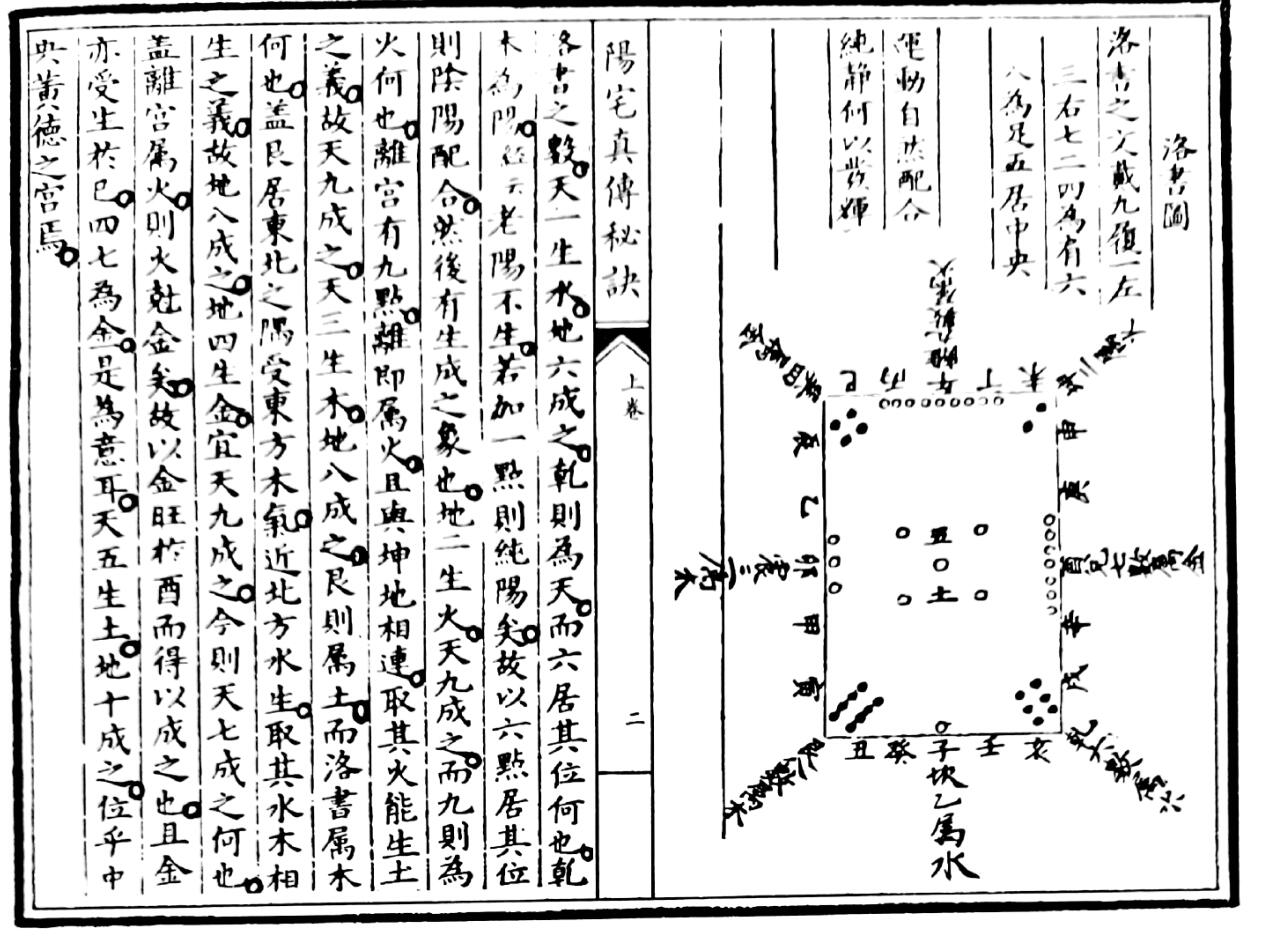 洛書圖
洛書之文戴九領一左
三右七二四為有六
八為足五居中央
運動自然配合
純静何以發輝
未
丁
午
丙
巳
申
庚
酉兌七數属金
辛
戌
乾六數属水
辰
乙
卯震三属木
甲
寅
五
土
亥
壬
子坎乙属水
癸
丑
陽宅真傳秘訣
上卷
二
洛書之數天一生水地六成之乾則為天而六居其位何也乾
本為陽老陽不生若加一點則純陽矣故以六點居其位
則陰陽配合然後有生成之象也地二生火天九成之而九則為
火何也離宮有九點離即属火且與坤地相連取其火能生土
之義故天九成之天三生木地八成之艮則属土而洛書属木
何也盖艮居東北之隅受東方木氣近北方水生取其水木相
生之義故地八成之地四生金宜天九成之今則天七成之何也
盖離宮属火則火尅金矣故以金旺於酉而得以成之也且金
亦受生於巳四七為金是為意耳天五生土地十成之位乎中
央黃德之宮焉